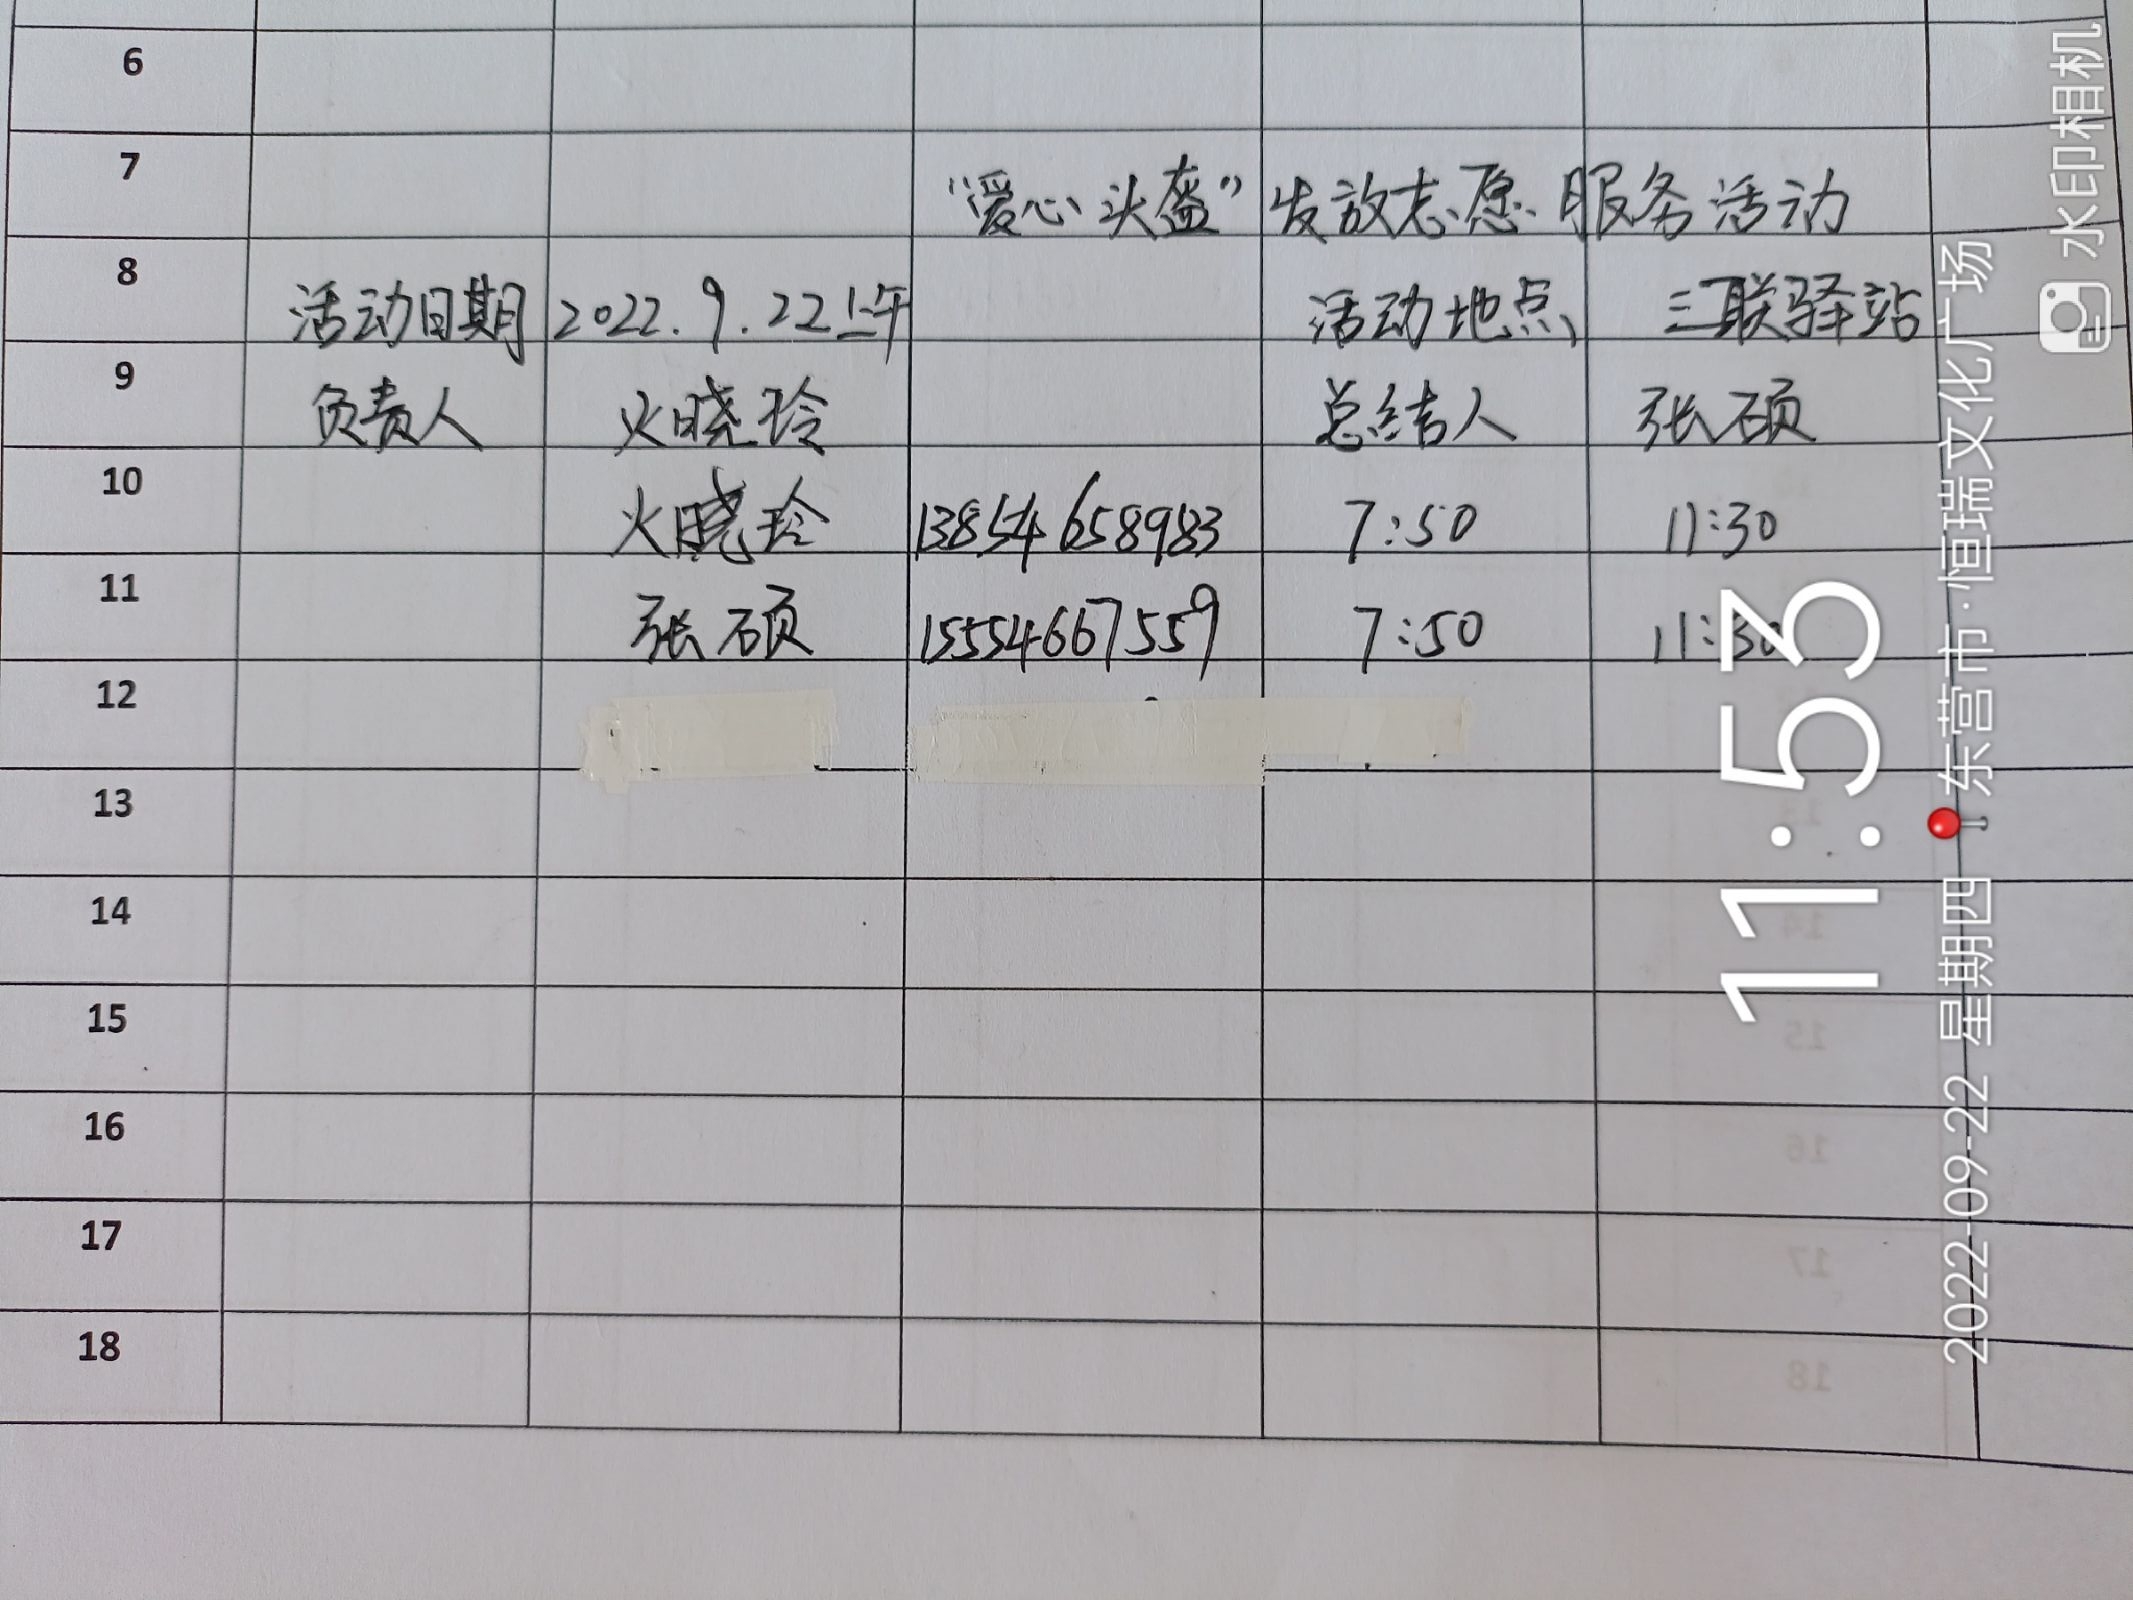 6
7 “爱心头盔”发放志愿服务活动
8 活动日期 2022.9.22上午 活动地点 三联驿站
9 负责人 火晓玲 总结人 张硕
10 火晓玲 13854658983 7:50 11:30
11 张硕 15554667559 7:50 11:30
12
13
14
15
16
17
18
11:53
2022-09-22 星期四 东营市·恒瑞文化广场
水印相机